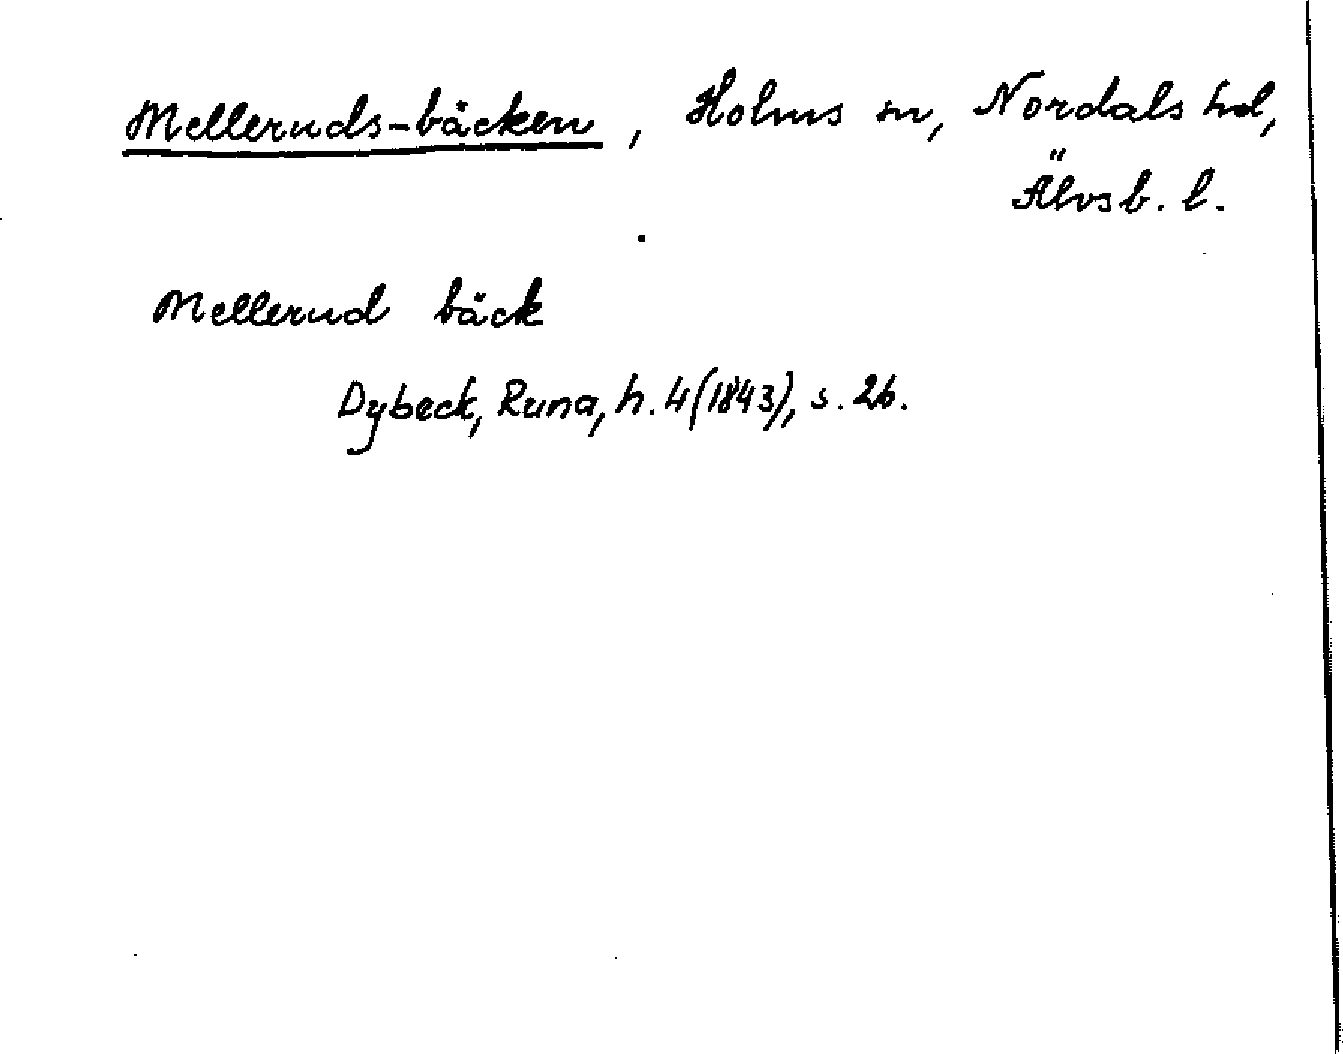 Melleruds-bäcken, Holms sn, Nordals hd,
Älvsb. l.
Mellerud bäck
Dybeck, Runa, h. 4 (1843), s. 26.